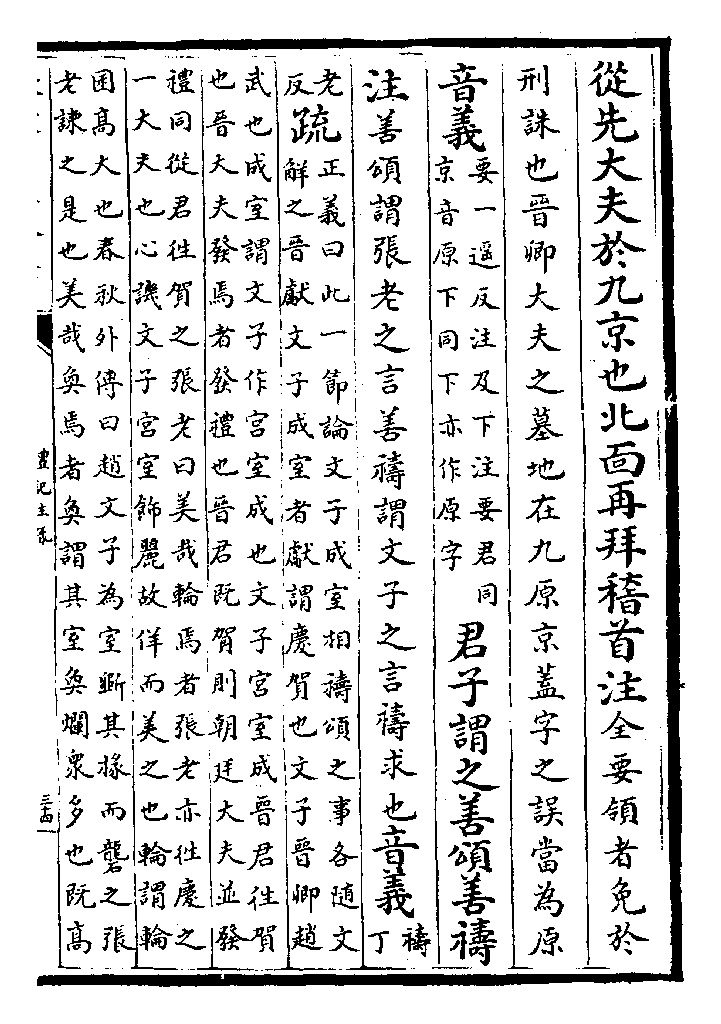 從先大夫於九京也北面再拜稽首注全要領者免於
刑誅也晉卿大夫之墓地在九原京蓋字之誤當為原
音義要一遥反注及下注要君同
京音原下同下亦作原字君子謂之善頌善禱
注善頌謂張老之言善禱謂文子之言禱求也音義禱
丁
老
反疏正義曰此一節論文子成室相禱頌之事各随文
解之晉獻文子成室者獻謂慶賀也文子晉卿趙
武也成室謂文子作宮室成也文子宮室成晉君徃賀
也晉大夫發焉者發禮也晉君既賀則朝廷大夫並發
禮同從君徃賀之張老曰美哉輪焉者張老亦徃慶之
一大夫也心譏文子宮室飾麗故佯而美之也輪謂輪
囷髙大也春秋外傳曰趙文子為室斵其椽而礱之張
老諫之是也美哉奐焉者奐謂其室奐爛衆多也既髙
禮記注疏